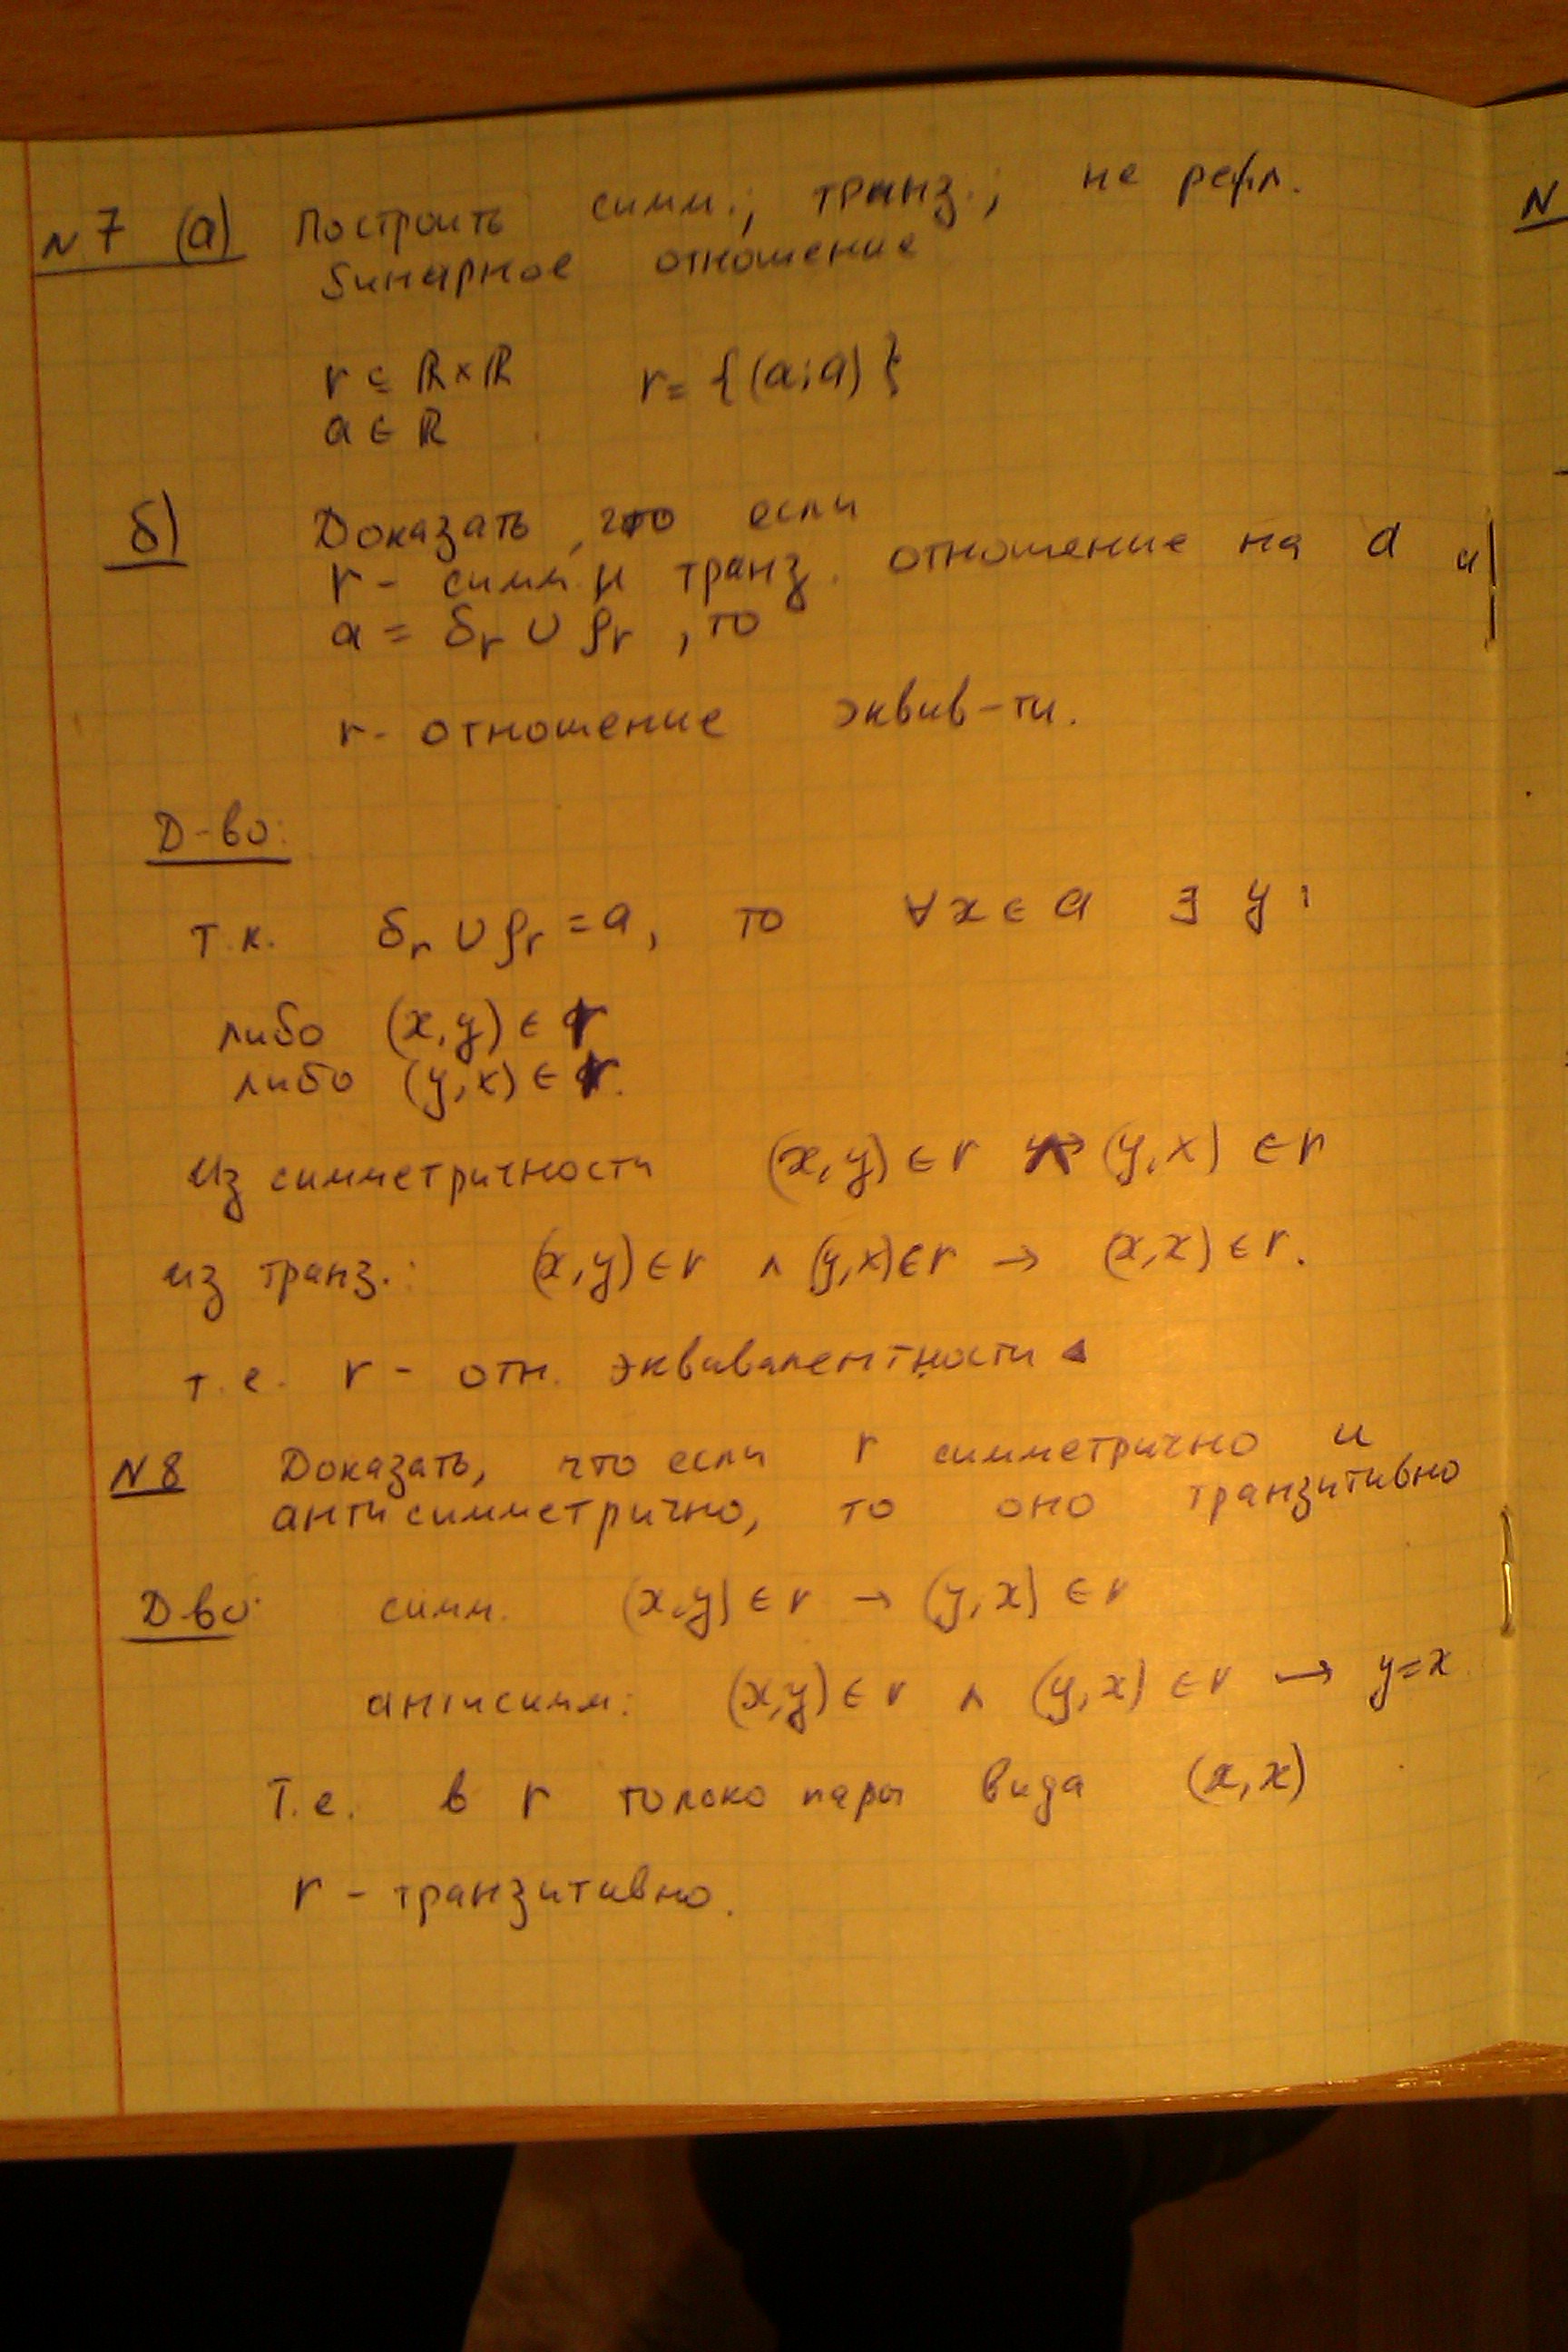 N7 (а) Построить симм.; транз.; не рефл.
бинарное отношение
r ⊆ ℝ×ℝ r = {(a;a)}
a ∈ ℝ
б) Доказать, что если
r - симм. и транз. отношение на a и
a = δr ∪ ρr, то
r - отношение эквив-ти.
Д-во:
т.к. δr ∪ ρr = a, то ∀x ∈ a ∃ y:
либо (x,y) ∈ r
либо (y,x) ∈ r.
Из симметричности (x,y) ∈ r (y,x) ∈ r
из транз.: (x,y) ∈ r ∧ (y,x) ∈ r → (x,x) ∈ r.
т.е. r - отн. эквивалентности
N8 Доказать, что если r симметрично и
антисимметрично, то оно транзитивно
Д-во: симм. (x,y) ∈ r → (y,x) ∈ r
антисимм: (x,y) ∈ r ∧ (y,x) ∈ r → y=x
Т.е. в r только пары вида (x,x)
r - транзитивно.
N